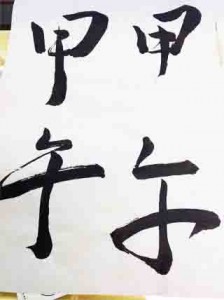 甲午
甲午